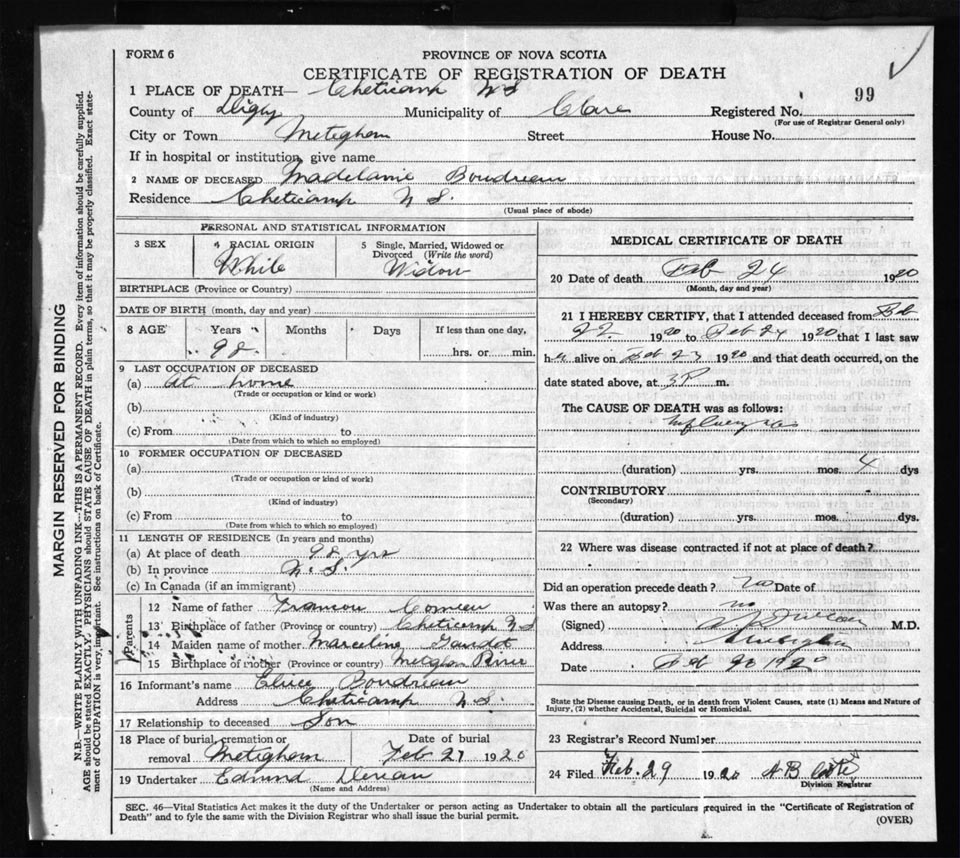 FORM 6
PROVINCE OF NOVA SCOTIA
CERTIFICATE OF REGISTRATION OF DEATH
1 PLACE OF DEATH— Cheticamp N S
County of Digby Municipality of Clare Registered No. 99
(For use of Registrar General only)
City or Town Meteghan Street House No.
If in hospital or institution, give name
2 NAME OF DECEASED Madelanie Boudreau
Residence Cheticamp N S.
(Usual place of abode)
PERSONAL AND STATISTICAL INFORMATION
3 SEX
4 RACIAL ORIGIN
White
5 Single, Married, Widowed or Divorced (Write the word)
Widow
BIRTHPLACE (Province or Country)
DATE OF BIRTH (month, day and year)
8 AGE Years Months Days If less than one day,
98 hrs. or min.
9 LAST OCCUPATION OF DECEASED
(a) At home
(Trade or occupation or kind or work)
(b)
(Kind of industry)
(c) From to
(Date from which to which so employed)
10 FORMER OCCUPATION OF DECEASED
(a)
(Trade or occupation or kind of work)
(b)
(Kind of industry)
(c) From to
(Date from which to which so employed)
11 LENGTH OF RESIDENCE (In years and months)
(a) At place of death 98 yrs
(b) In province N. S.
(c) In Canada (if an immigrant)
Parents
12 Name of father Comeau
13 Birthplace of father (Province or country) Cheticamp N S
14 Maiden name of mother Marceline
15 Birthplace of mother (Province or country) River
16 Informant's name Boudreau
Address Cheticamp N S.
17 Relationship to deceased Son
18 Place of burial, cremation or removal Meteghan
Date of burial Feb 27 1920
19 Undertaker Edmund
(Name and Address)
MEDICAL CERTIFICATE OF DEATH
20 Date of death Feb 24 1920
(Month, day and year)
21 I HEREBY CERTIFY, that I attended deceased from Feb
22 1920 to Feb 24 1920 that I last saw
her alive on Feb 23 1920 and that death occurred, on the
date stated above, at 3P m.
The CAUSE OF DEATH was as follows:
Influenza
(duration) yrs. mos. 4 dys
CONTRIBUTORY
(Secondary)
(duration) yrs. mos. dys.
22 Where was disease contracted if not at place of death?
Did an operation precede death? no Date of
Was there an autopsy? no
(Signed) M.D.
Address
Date Feb 1920
State the Disease causing Death, or in death from Violent Causes, state (1) Means and Nature of
Injury, (2) whether Accidental, Suicidal or Homicidal.
23 Registrar's Record Number
24 Filed Feb. 29 1920
Division Registrar
SEC. 46—Vital Statistics Act makes it the duty of the Undertaker or person acting as Undertaker to obtain all the particulars required in the "Certificate of Registration of
Death" and to fyle the same with the Division Registrar who shall issue the burial permit.
(OVER)
MARGIN RESERVED FOR BINDING
N.B.—WRITE PLAINLY WITH UNFADING INK—THIS IS A PERMANENT RECORD. Every item of information should be carefully supplied.
AGE should be stated EXACTLY. PHYSICIANS should STATE CAUSE OF DEATH in plain terms, so that it may be properly classified. Exact state-
ment of OCCUPATION is very important. See instructions on back of Certificate.